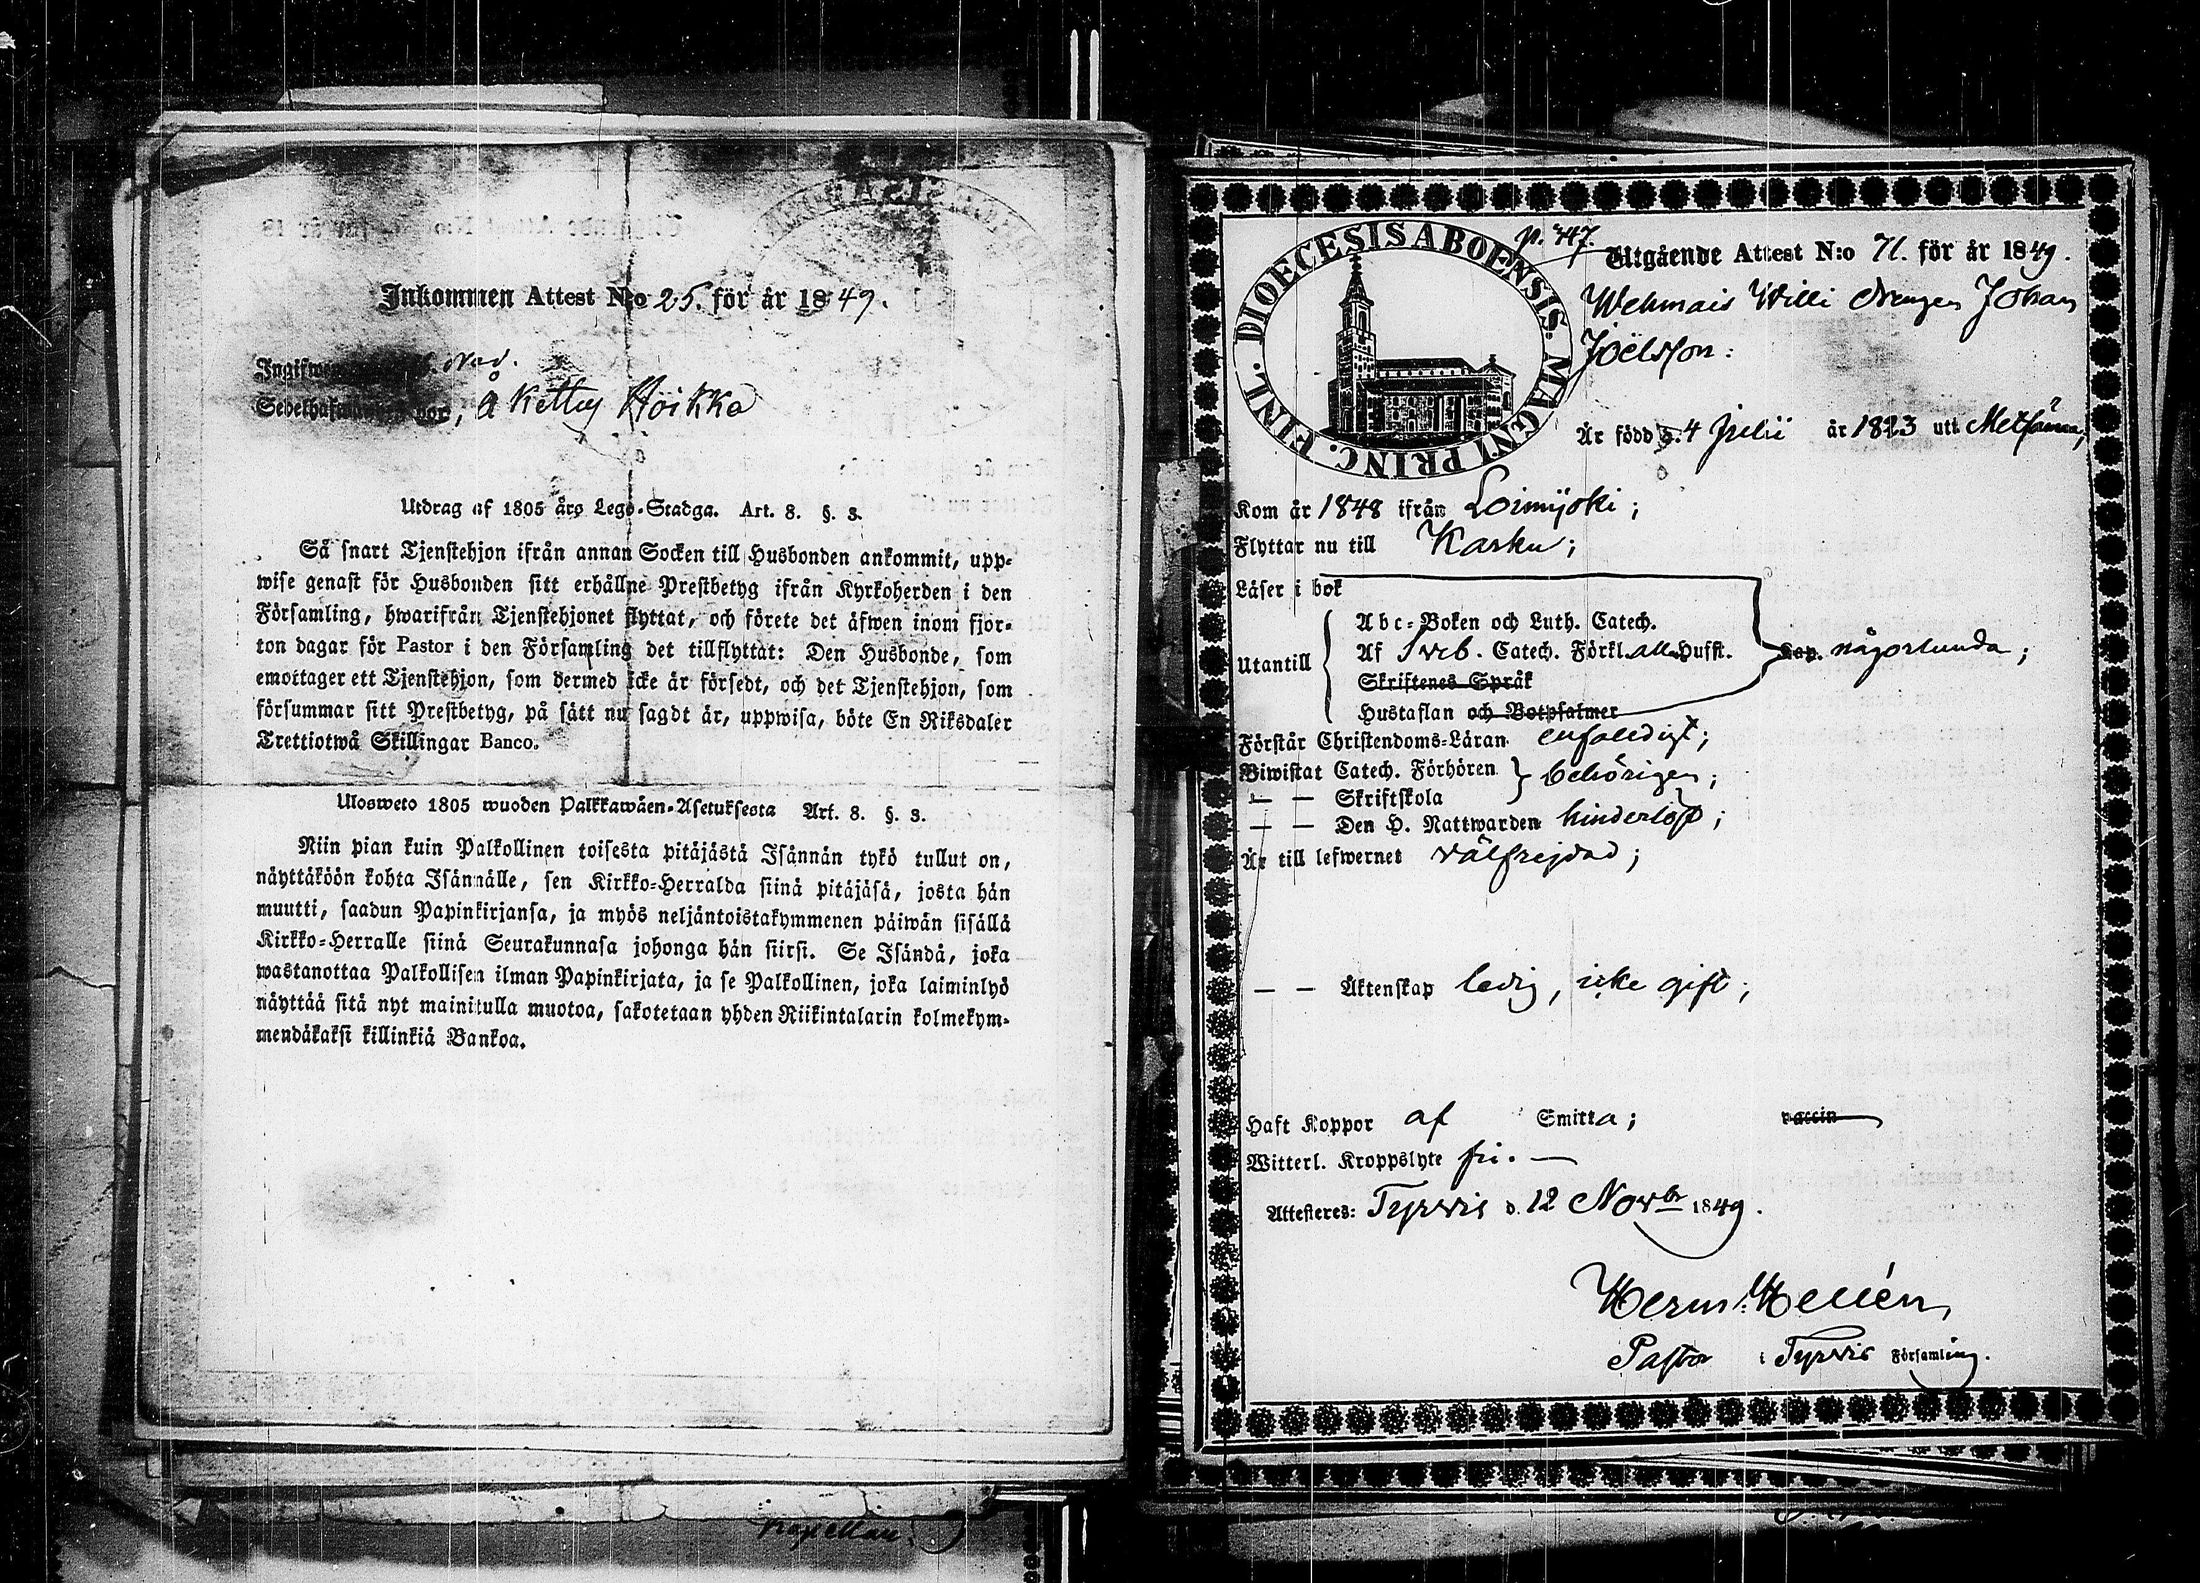 Inkommen Attest N:o 25. för år 1849.
Nov.
å Kettuj Hoikka
Utdrag af 1805 års Lego-Stadga. Art. 8. §. 3.
Så snart Tjenstehjon ifrån annan Socken till Husbonden ankommit, upp-
wise genast för Husbonden sitt erhållne Prestbetyg ifrån Kyrkoherden i den
Församling, hwarifrån Tjenstehjonet flyttat, och förete det äfwen inom fjor-
ton dagar för Pastor i den Församling det tillflyttat: Den Husbonde, som
emottager ett Tjenstehjon, som dermed icke är försedt, och det Tjenstehjon, som
försummar sitt Prestbetyg, på sätt nu sagdt är, uppwisa, böte En Riksdaler
Trettiotwå Skillingar Banco.
Ulosweto 1805 wuoden Palkkawäen-Asetuksesta Art. 8. §. 3.
Niin pian kuin Palkollinen toisesta pitäjästä Isännän tykö tullut on,
näyttäköön kohta Isännälle, sen Kirkko-Herralda siinä pitäjäsä, josta hän
muutti, saadun Papinkirjansa, ja myös neljäntoistakymmenen päiwän sisällä
Kirkko-Herralle siinä Seurakunnasa johonga hän siirsi. Se Isändä, joka
wastanottaa Palkollisen ilman Papinkirjata, ja se Palkollinen, joka laiminlyö
näyttää sitä nyt mainitulla muotoa, sakotetaan yhden Riikintalarin kolmekym-
mendäkaksi killinkiä Bankoa.
Kapellan.
DIOECESIS ABOENSIS. MAGNI PRINC. FINL.
p. 447.
Utgående Attest N:o 71. för år 1849.
Wehmais Willi drengen Johan
Joëlsson:
Är född d. 4 Julii år 1823 uti
Kom år 1848 ifrån Loimijoki;
Flyttar nu till Karku;
Läser i bok
Abc-Boken och Luth. Catech.
Utantill Af Sveb. Catech. Förkl. all. Hufst. Kap. någorlunda;
Skriftenes Språk
Hustaflan och Botpsalmer
Förstår Christendoms-Läran enfaldigt;
Biwistat Catech. Förhören behörigen;
— — Skriftskola
— — Den H. Nattwarden hinderlöst;
Är till lefwernet välfrejdad;
— — Äktenskap ledig, icke gift;
Haft Koppor af Smitta; vaccin
Witterl. Kroppslyte fri. —
Attesteres: Tyrvis d. 12 Novbr 1849.
Herm. Hellén,
Pastor i Tyrvis Församling.